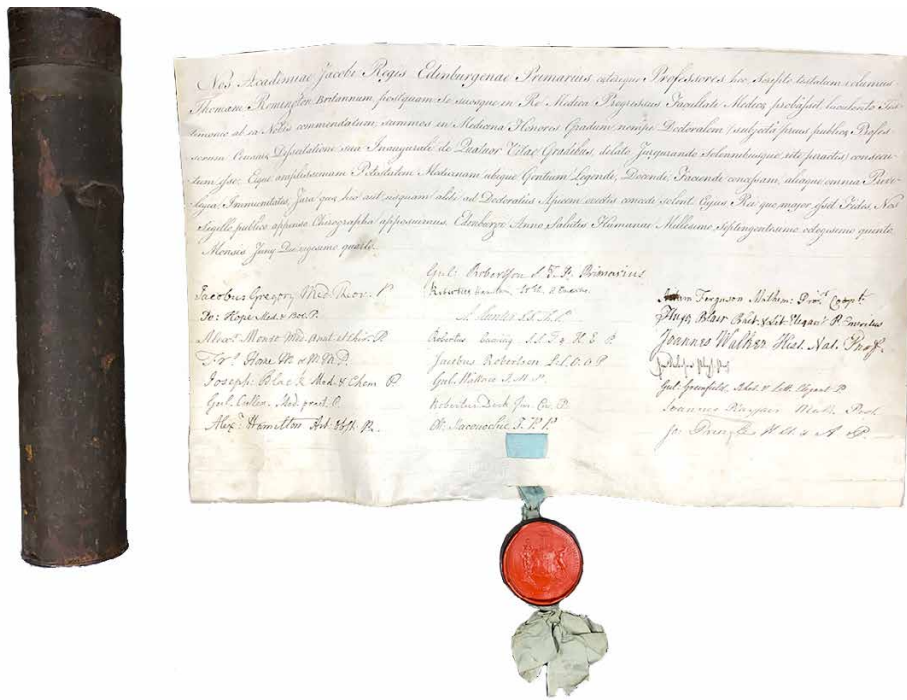 Nos Academiae Jacobi Regis Edinburgenae Primarius, caeterique Professores hoc scripto testatum volumus
Thomam Remington Britannum, postquam se suosque in Re Medica Progressus Facultati Medicae probasset, luculento Tes-
timonio ab ea Nobis commendatum, summos in Medicina Honores Gradum nempe Doctoralem (subjecta prius publicae Profes-
sorum Censurae Dissertatione sua Inaugurale de Quatuor Vitae Gradibus, delato Jurejurando Solennibusque rite peractis) consecu-
tum esse; Eique amplissimam Potestatem Medicinam ubique Gentium Legendi, Docendi, Faciendi concessam, aliaque omnia Privi-
legia, Immunitates, Jura quae hic aut usquam alibi ad Doctoratus Apicem evectis concedi solent. Cujus Rei quo major esset Fides, Nos
Sigillo publico appenso Chirographa apposuimus. Edinburgi Anno Salutis Humanae Millesimo Septingentesimo octogesimo quinto
Mensis Junij Die vigesimo quarto.
Gul: Robertson S. T. P. Primarius
Jacobus Gregory Med. Theor. P.
Jo: Hope Med. & Bot. P.
Alexr. Monro Med. Anat. et Chir. P.
Joseph Black Med. & Chem P.
Gul. Cullen Med. pract. P.
Alexr. Hamilton Art. Obst. Pr.
A. Hunter S. T. P.
Jacobus Robertson
Gul. Wallace
Robertus Dick Jur. Civ. P.
Al. Maconochie
Adam Ferguson Mathem: Prof.
Hugo Blair Rhet. & Lit. Elegant. P. Emeritus
Joannes Walker Hist. Nat. Prof.
Gul. Greenfield, Rhet. & Litt. Elegant. P.
Joannes Playfair Math. Prof.
Jo: Pringle